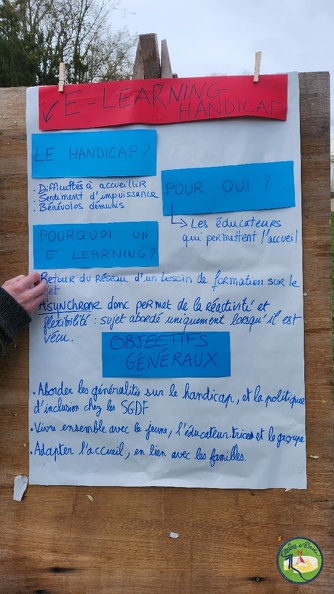 E-LEARNING
HANDICAP
LE HANDICAP ?
. Difficultés à accueillir
. Sentiment d'impuissance
. Bénévoles démunis
POUR QUI ?
Les éducateurs
qui permettent l'accueil
POURQUOI UN
E LEARNING ?
. Retour du réseau d'un besoin de formation sur le
. Asynchrone donc permet de la réactivité et
flexibilité : sujet abordé uniquement lorsqu'il est
vécu.
OBJECTIFS
GÉNÉRAUX
. Aborder les généralités sur le handicap, et la politique
d'inclusion chez les SGDF
. Vivre ensemble avec le jeune, l'éducateur.trices et le groupe
. Adapter l'accueil, en lien avec les familles.